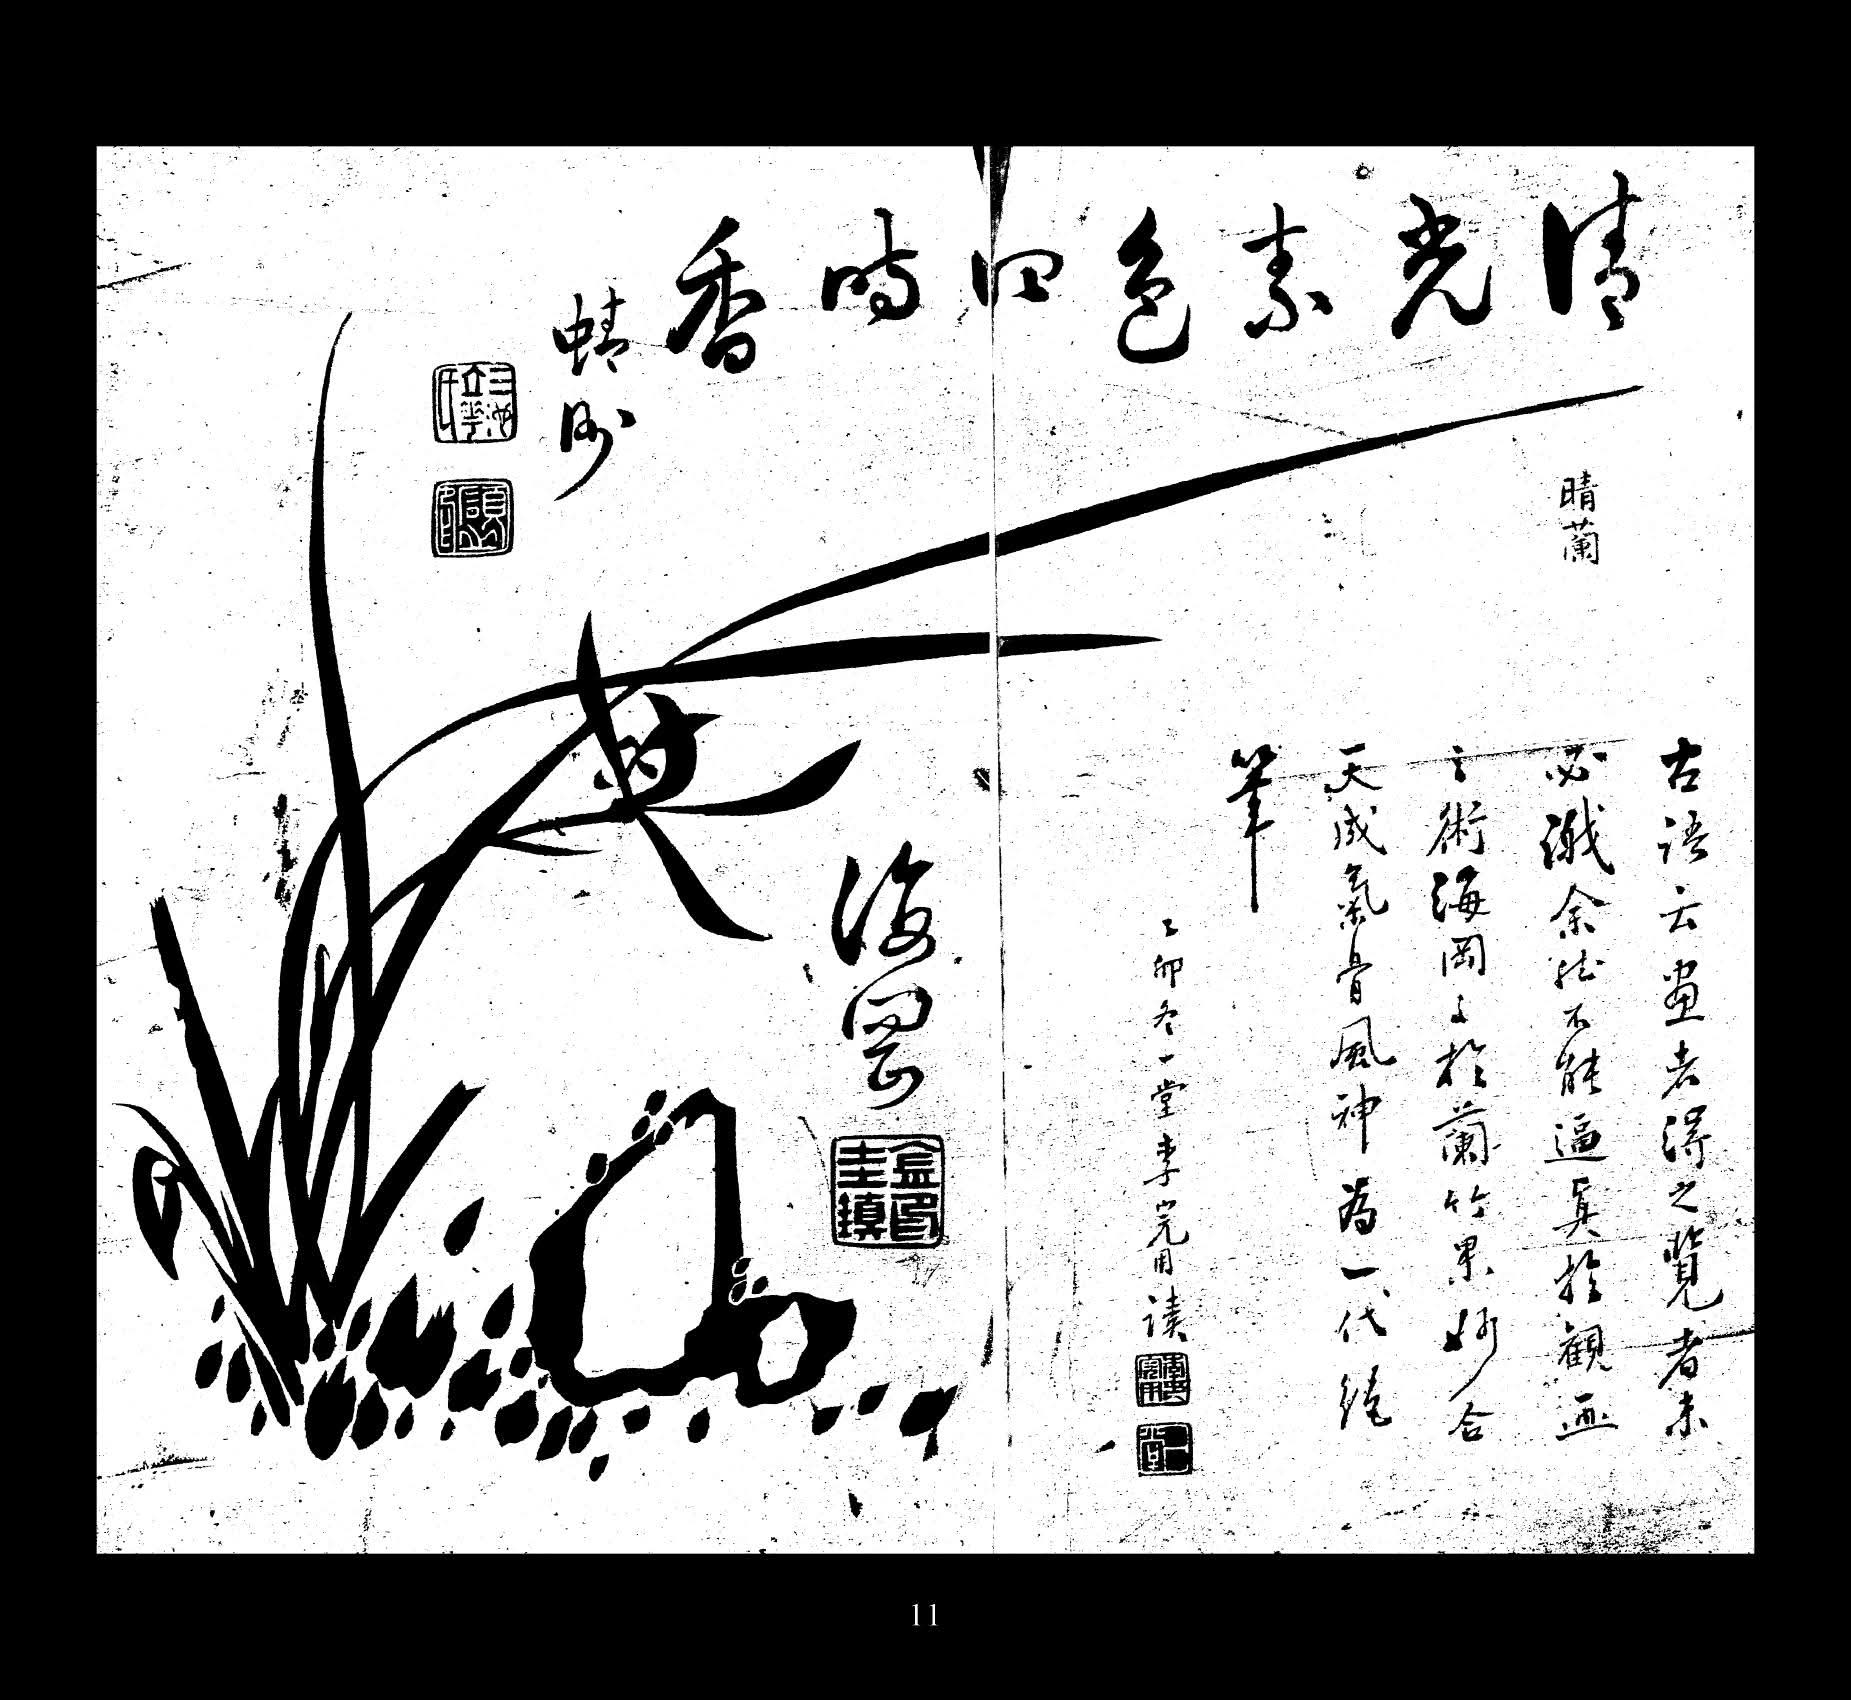 清光素色四時香
蜻洲
晴蘭
古語云畫者得之覽者未
必識余於不能逼真於觀画
之術海岡之於蘭竹果妙合
天成氣骨風神為一代絶
筆
乙卯冬一堂李完用讀
海岡
11